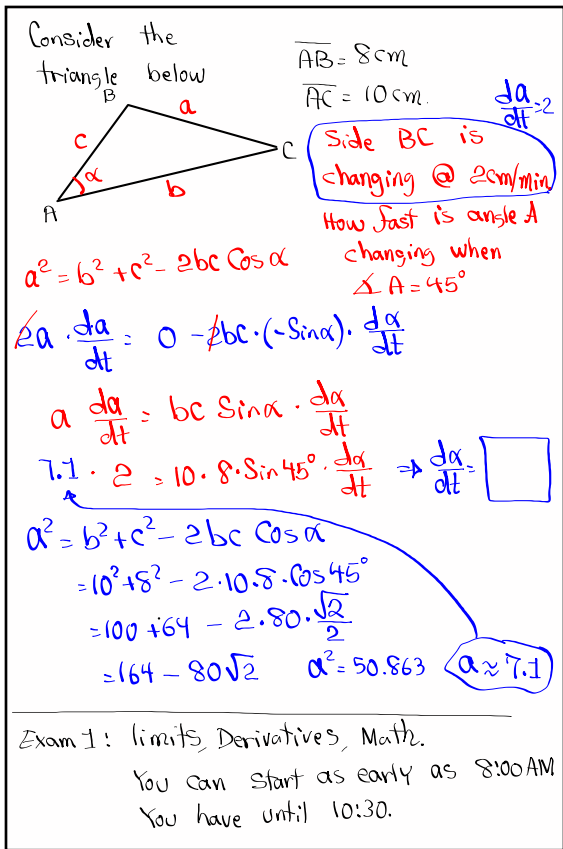 Consider the
triangle below
AB = 8cm
AC = 10cm.
da/dt = 2
B
a
c
C
α
b
A
Side BC is
changing @ 2cm/min
How fast is angle A
changing when
∡ A = 45°
a² = b² + c² - 2bc Cos α
2a · da/dt = 0 - 2bc · (-Sin α) · dα/dt
a da/dt = bc Sin α · dα/dt
7.1 · 2 = 10 · 8 · Sin 45° · dα/dt ⇒ dα/dt =
a² = b² + c² - 2bc Cos α
= 10² + 8² - 2·10·8·Cos 45°
= 100 + 64 - 2·80·√2/2
= 164 - 80√2 a² = 50.863 a ≈ 7.1
Exam 1: limits, Derivatives, Math.
You can start as early as 8:00 AM
You have until 10:30.